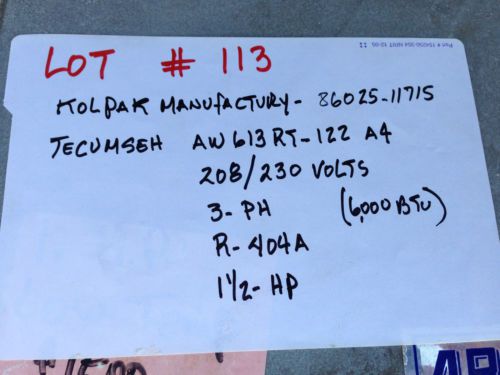 LOT # 113
KOLPAK MANUFACTURY- 86025-11715
TECUMSEH AW613RT-122 A4
208/230 VOLTS
3-PH (6,000 BTU)
R-404A
1 1/2-HP